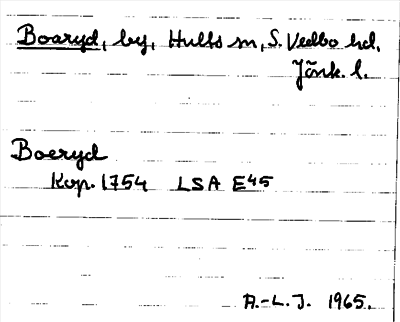 Boaryd, by, Hults sn, S. Vedbo hd,
Jönk. l.
Boeryd
Kop. 1754 LSA E45
A.-L. J. 1965.